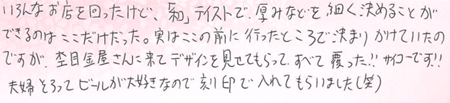 いろんなお店を回ったけど、「和」テイストで、厚みなどを細く決めることが
できるのはここだけだった。実はこの前に行ったところで決まりかけていたの
ですが、杢目金屋さんに来てデザインを見せてもらって、すべて覆った!!サイコーです!!
夫婦そろってビールが大好きなので刻印で入れてもらいました(笑)